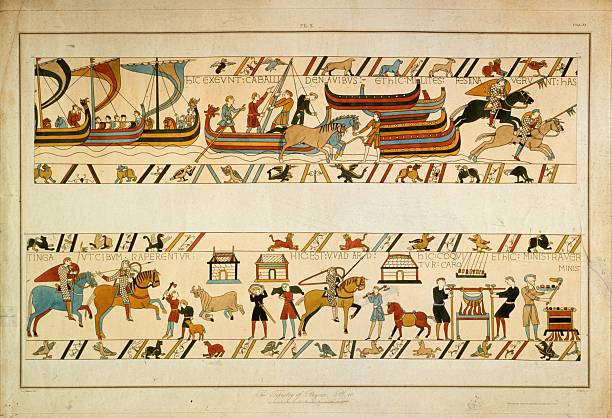 Pl. X.
HIC EXEVNT: CABALLI DENAVIBUS:- ETHIC: MILITES: FESTINAVERVNT: HAS
TINGA VT CIBVM. RAPERENTVR: HIC: EST: VVADARD: HIC: COQV ETHIC: MINISTRAVER
TVR: CARO MINIS
The Tapestry of Bayeux. Pl. 10.